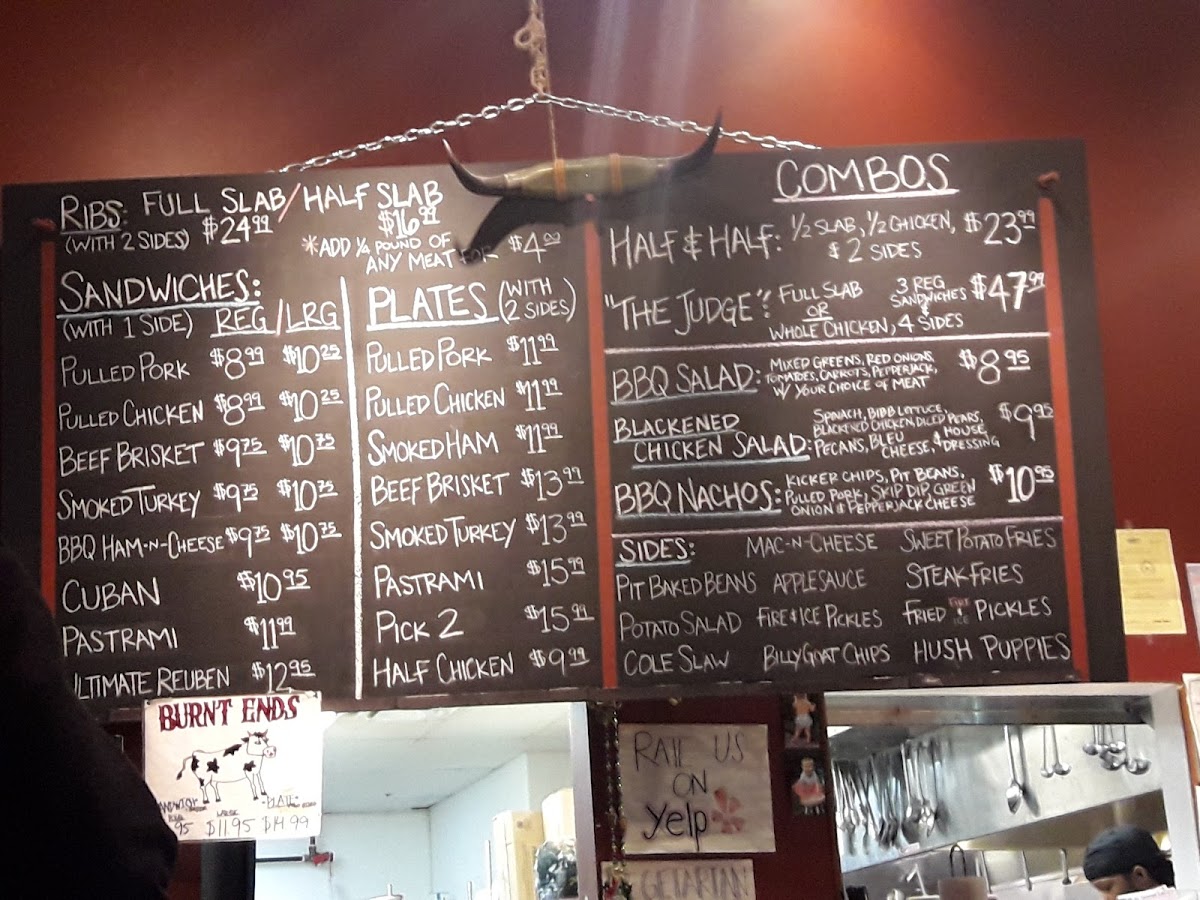 RIBS: FULL SLAB/HALF SLAB
(WITH 2 SIDES) $24.99 $16.99
*ADD 1/4 POUND OF
ANY MEAT FOR $4.00
SANDWICHES:
(WITH 1 SIDE) REG/LRG
PULLED PORK $8.99 $10.25
PULLED CHICKEN $8.99 $10.25
BEEF BRISKET $9.75 $10.75
SMOKED TURKEY $9.75 $10.75
BBQ HAM-N-CHEESE $9.75 $10.75
CUBAN $10.95
PASTRAMI $11.99
ULTIMATE REUBEN $12.95
PLATES (WITH
2 SIDES)
PULLED PORK $11.99
PULLED CHICKEN $11.99
SMOKED HAM $11.99
BEEF BRISKET $13.99
SMOKED TURKEY $13.99
PASTRAMI $15.99
PICK 2 $15.99
HALF CHICKEN $9.99
COMBOS
HALF & HALF: 1/2 SLAB, 1/2 CHICKEN, $23.99
& 2 SIDES
"THE JUDGE": FULL SLAB 3 REG $47.99
OR SANDWICHES
WHOLE CHICKEN, 4 SIDES
BBQ SALAD: MIXED GREENS, RED ONIONS, $8.95
TOMATOES, CARROTS, PEPPERJACK,
W/ YOUR CHOICE OF MEAT
BLACKENED SPINACH, BIBB LETTUCE, $9.95
BLACKENED CHICKEN, DICED PEARS,
CHICKEN SALAD: PECANS, BLEU CHEESE, & HOUSE DRESSING
BBQ NACHOS: KICKER CHIPS, PIT BEANS, $10.95
PULLED PORK, SKIP DIP, GREEN
ONION & PEPPERJACK CHEESE
SIDES: MAC-N-CHEESE SWEET POTATO FRIES
PIT BAKED BEANS APPLESAUCE STEAK FRIES
POTATO SALAD FIRE & ICE PICKLES FRIED FIRE & ICE PICKLES
COLE SLAW BILLY GOAT CHIPS HUSH PUPPIES
BURNT ENDS
PLATE
$11.95 $14.99
RATE US
ON
Yelp